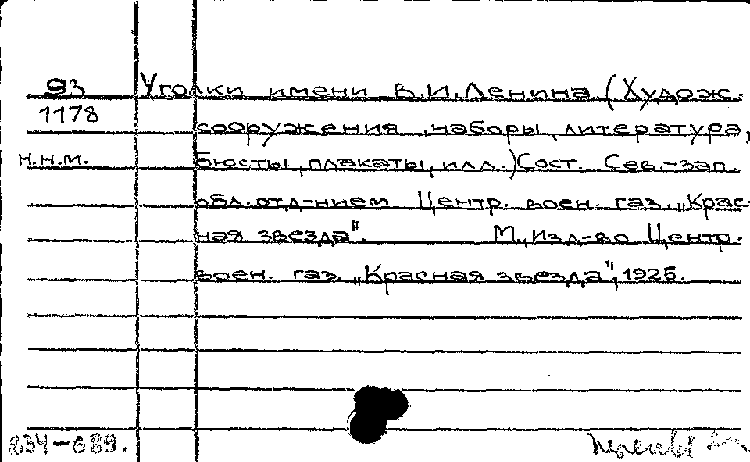 93 Уголки имени В.И.Ленина (Худож.
1178
сооружения, наборы, литература,
н.н.м. бюсты, плакаты, илл.) Сост. Сев.-зап.
обл.отд-нием Центр. воен. газ. „Крас-
ная звезда". М., изд-во Центр.
воен. газ. „Красная звезда", 1925.
234-689.